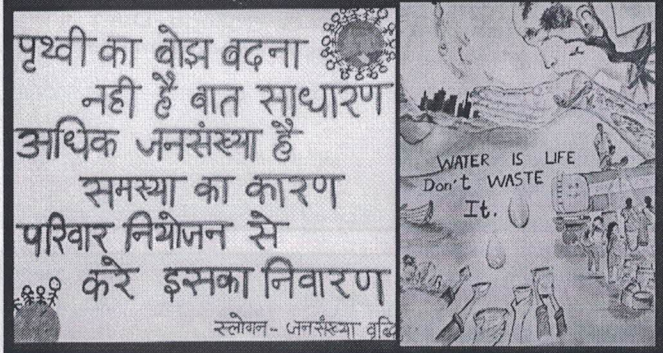 पृथ्वी का बोझ बढना
नही है बात साधारण
अधिक जनसंख्या है
समस्या का कारण
परिवार नियोजन से
करे इसका निवारण
स्लोगन - जनसंख्या वृद्धि
WATER IS LIFE
Don't WASTE
It.